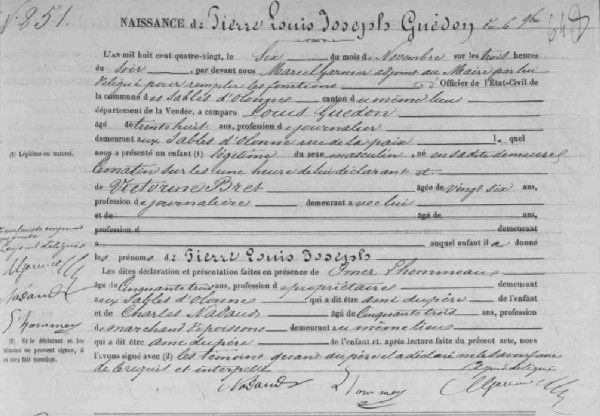 N° 251.
NAISSANCE de Pierre Louis Joseph Guédon du 6 9bre
L'AN mil huit cent quatre-vingt, le Six du mois de Novembre sur les trois heures
du Soir, par devant nous Marcel Garnier adjoint au Maire par lui
délégué pour remplir les fonctions d'Officier de l'Etat-Civil de
la commune des Sables d'Olonne canton du même lieu
département de la Vendée, a comparu Louis Guédon
âgé de trente huit ans, profession de journalier
demeurant aux Sables d'Olonne rue de la paix lequel
(1) Légitime ou naturel.
nous a présenté un enfant (1) légitime du sexe masculin, né en sa dite demeure
ce matin sur les une heure de lui déclarant et
de Victorine Bret âgée de vingt six ans,
profession de journalière demeurant avec lui
et de âgé de ans,
profession d demeurant
a auquel enfant il a donné
les prénoms de Pierre Louis Joseph
Les dites déclaration et présentation faites en présence de Omer Lhommeau
âgé de Cinquante trois ans, profession de propriétaire demeurant
aux Sables d'Olonne qui a dit être ami du père de l'enfant
et de Charles Nadaud âgé de Cinquante trois ans, profession
de marchand de poissons demeurant au même lieu
qui a dit être ami du père de l'enfant et, après lecture faite du présent acte, nous
(2) Si le déclarant et les
témoins ne peuvent signer, il
en sera fait mention.
l'avons signé avec (2) les témoins quant au père il a déclaré ne le savoir faire
de ce requis et interpellé
Nadaud